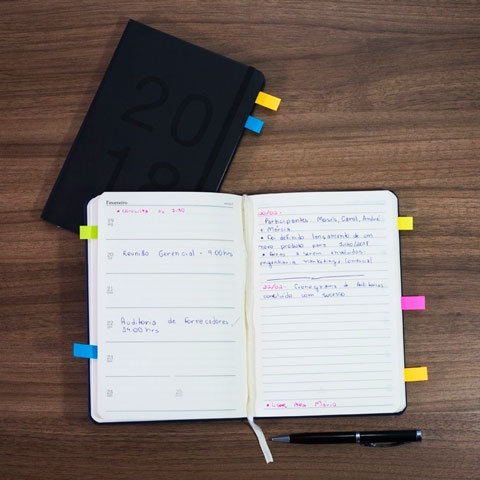 2018
Fevereiro
Reunião Gerencial - 9:00hrs
Auditoria de Fornecedores
14:00 hrs
20/02 -
Participantes Maurís, Carol, André
+ Márcia
• Foi definido lançamento de um
novo produto para Julho/2018
• Áreas a serem envolvidas
engenharia marketing, Comercial
22/02. Cronograma de auditorias
concluído com sucesso
• Ligar para Marcia